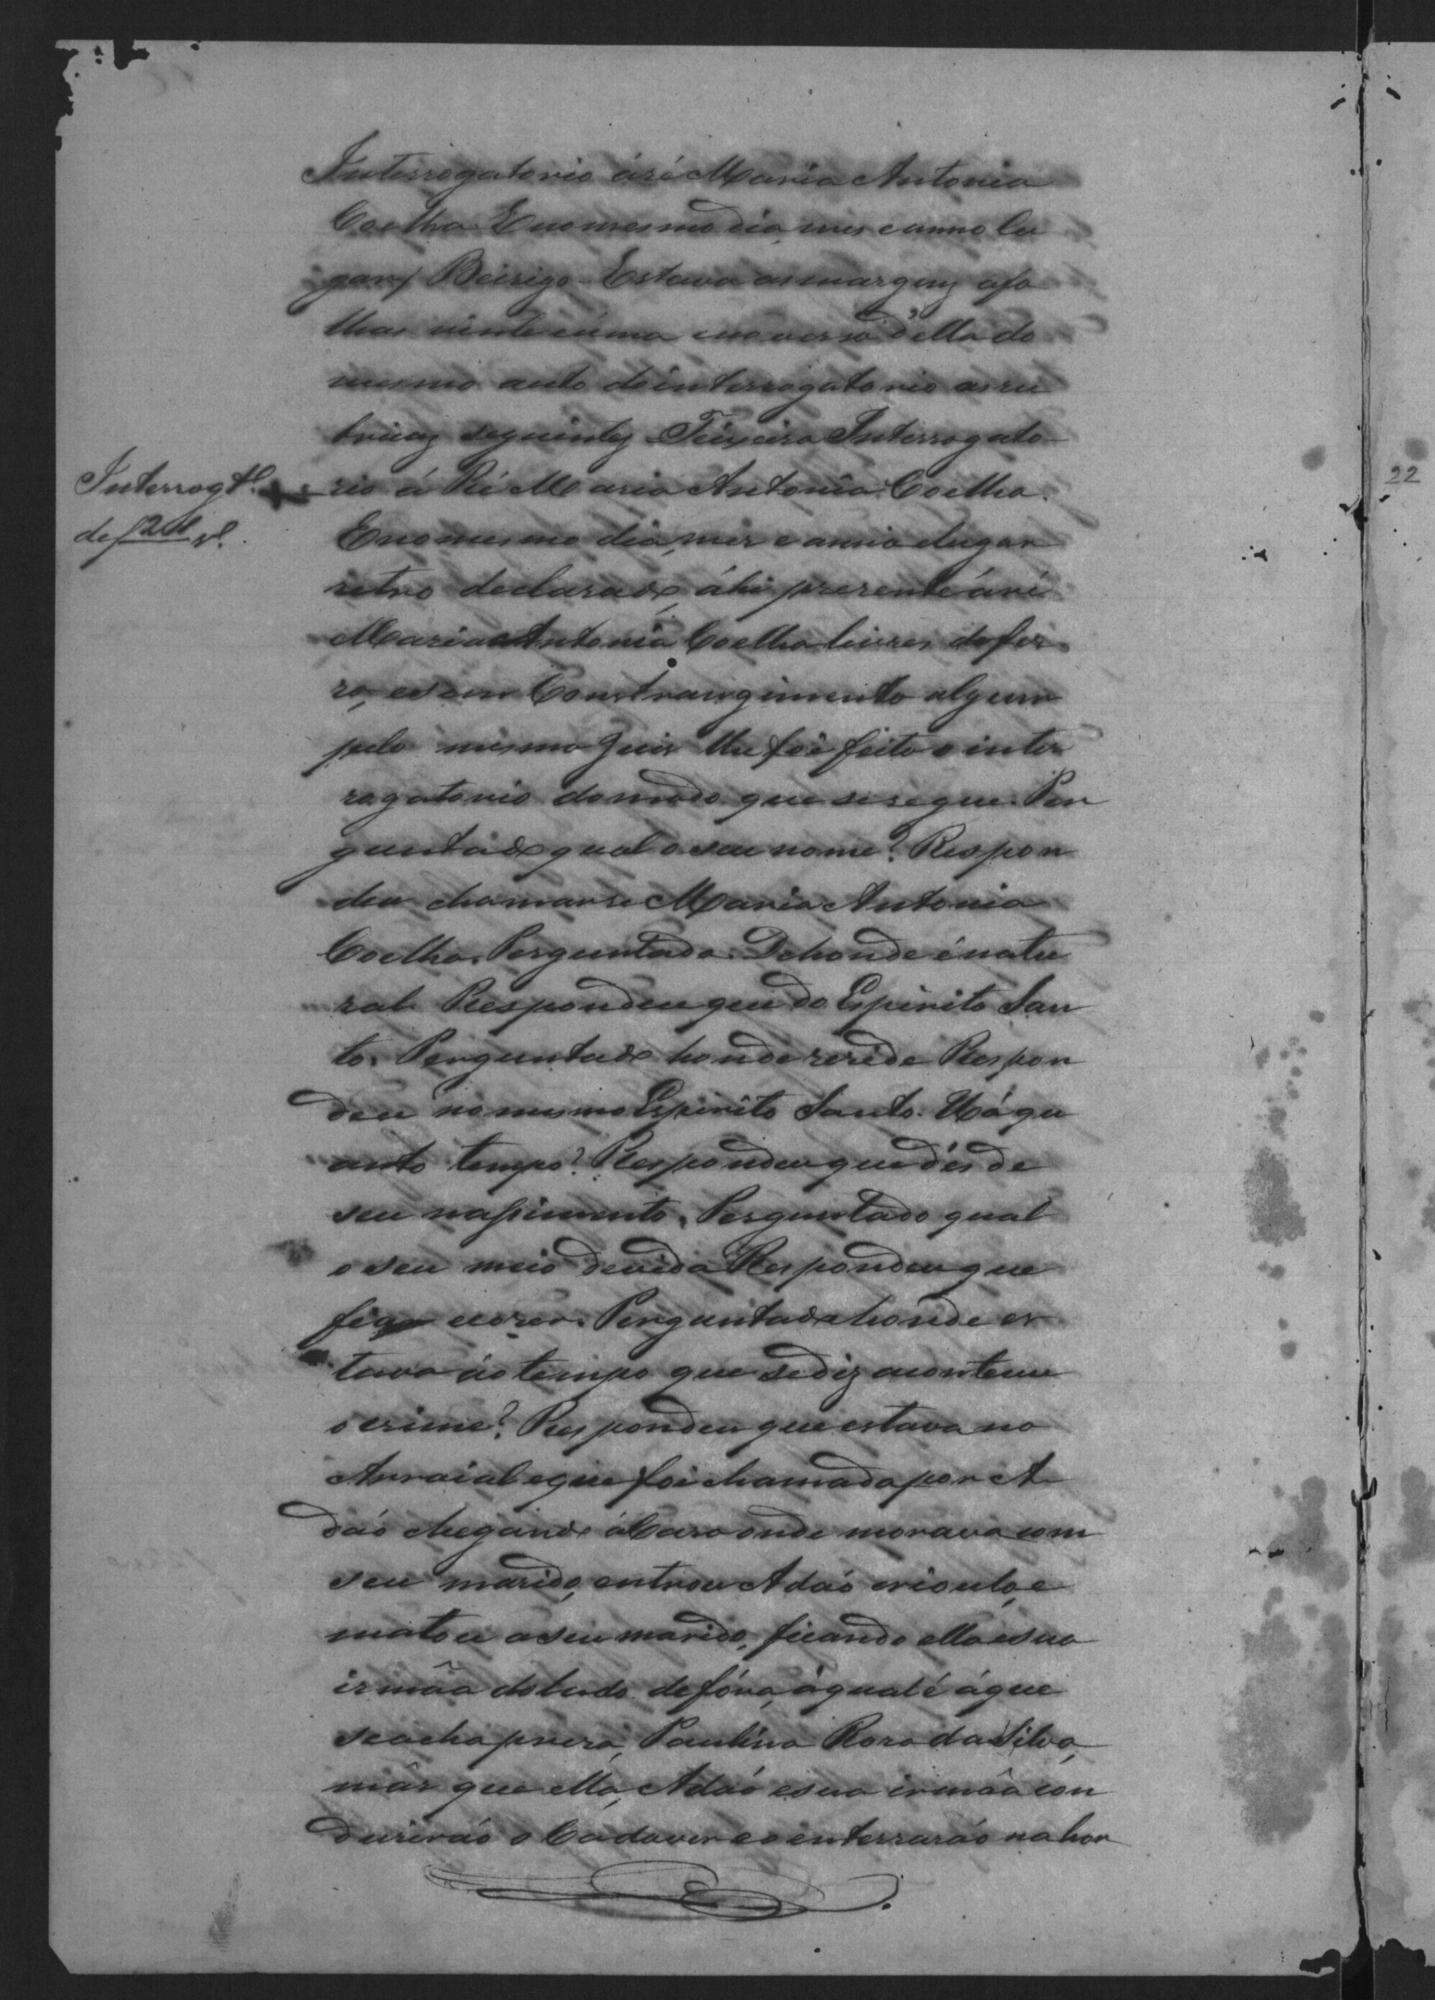 Interrogatorio á ré Maria Antonia
Coelha E no mesmo dia mes e anno lu
gar / Beirigo - Estava as margens afo
lhas vinte e uma e no verso d'ella do
mesmo auto de interrogatorio as ru
bricas seguintes Teixeira Interrogato
Interrogt.º
de f 21 v.
rio á Ré Maria Antonia Coelha.
E no mesmo dia, mes e anno e lugar
retro declarado, áhi prezente á ré
Maria Antonia Coelha livres de fer
ro, e sem Constrangimento algum
pelo mesmo Juis lhe foi feito o inter
rogatorio do modo que se segue. Per
guntado qual o seu nome? Respon
deu chamarse Maria Antonia
Coelha. Perguntada. Dehonde é natu
ral. Respondeu que do Espirito San
to. Perguntado honde rezide Respon
deu no mesmo Espirito Santo. Há qu
anto tempo? Respondeu que dés de
seu nassimento. Perguntado qual
o seu meio de vida Respondeu que
fiar e cozer. Perguntado honde es
tava áo tempo que se diz aconteceu
o crime? Respondeu que estava no
Arraial e que foi chamada por A
dáo chegando á Caza onde morava com
seu marido, entrou Adáo crioulo, e
matou a seu marido, ficando ella e sua
irmãa do lado de fóra, á qual é á que
se acha preza, Paulina Roza da Silva,
más que ella, Adáo e sua irmãa con
duzirão o Cadaver e o enterrarão na hor
22